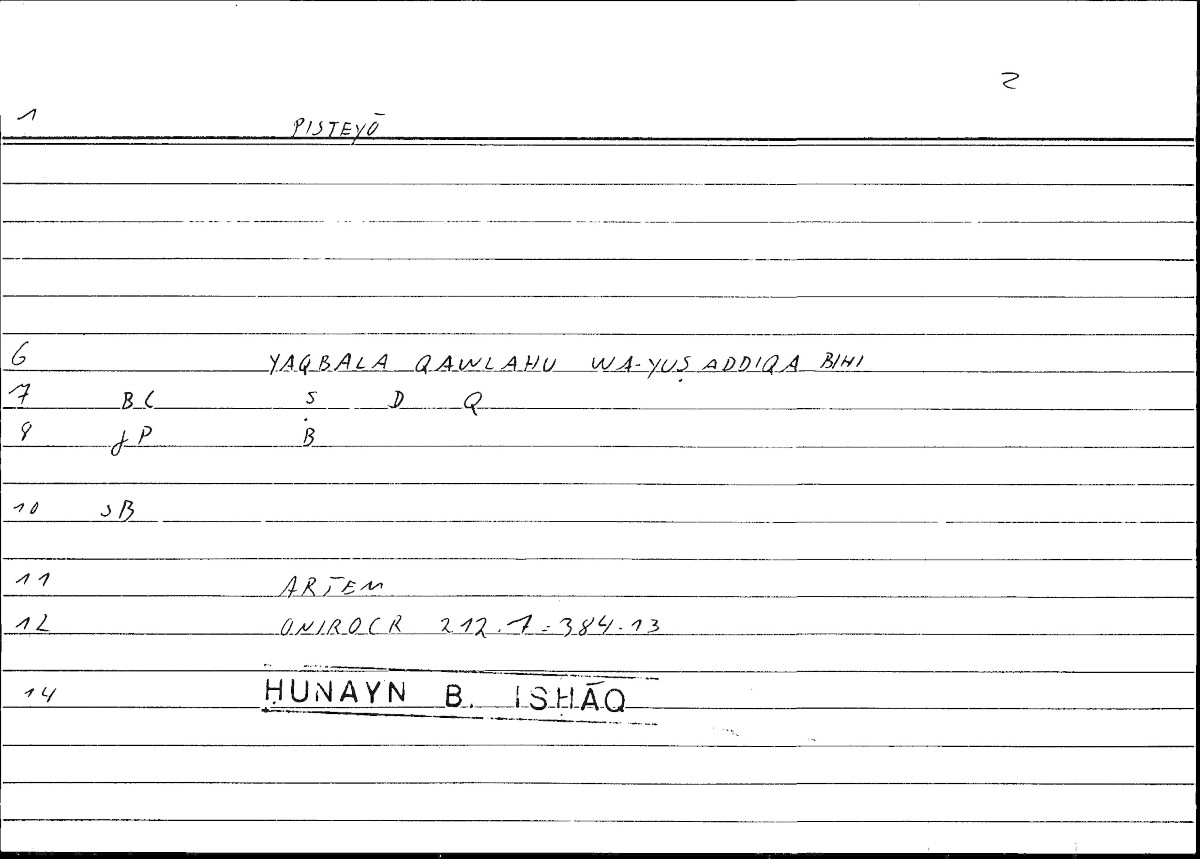 2
1 PISTEYŌ
6 YAQBALA QAWLAHU WA-YUṢADDIQA BIHI
7 BC Ṣ D Q
8 JP B
10 SB
11 ARTEM
12 ONIROCR 212.7=384.13
14 ḤUNAYN B. ISḤĀQ